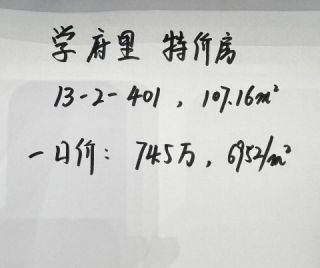 学府里 特价房
13-2-401，107.16m²
一口价：74.5万，6952/m²